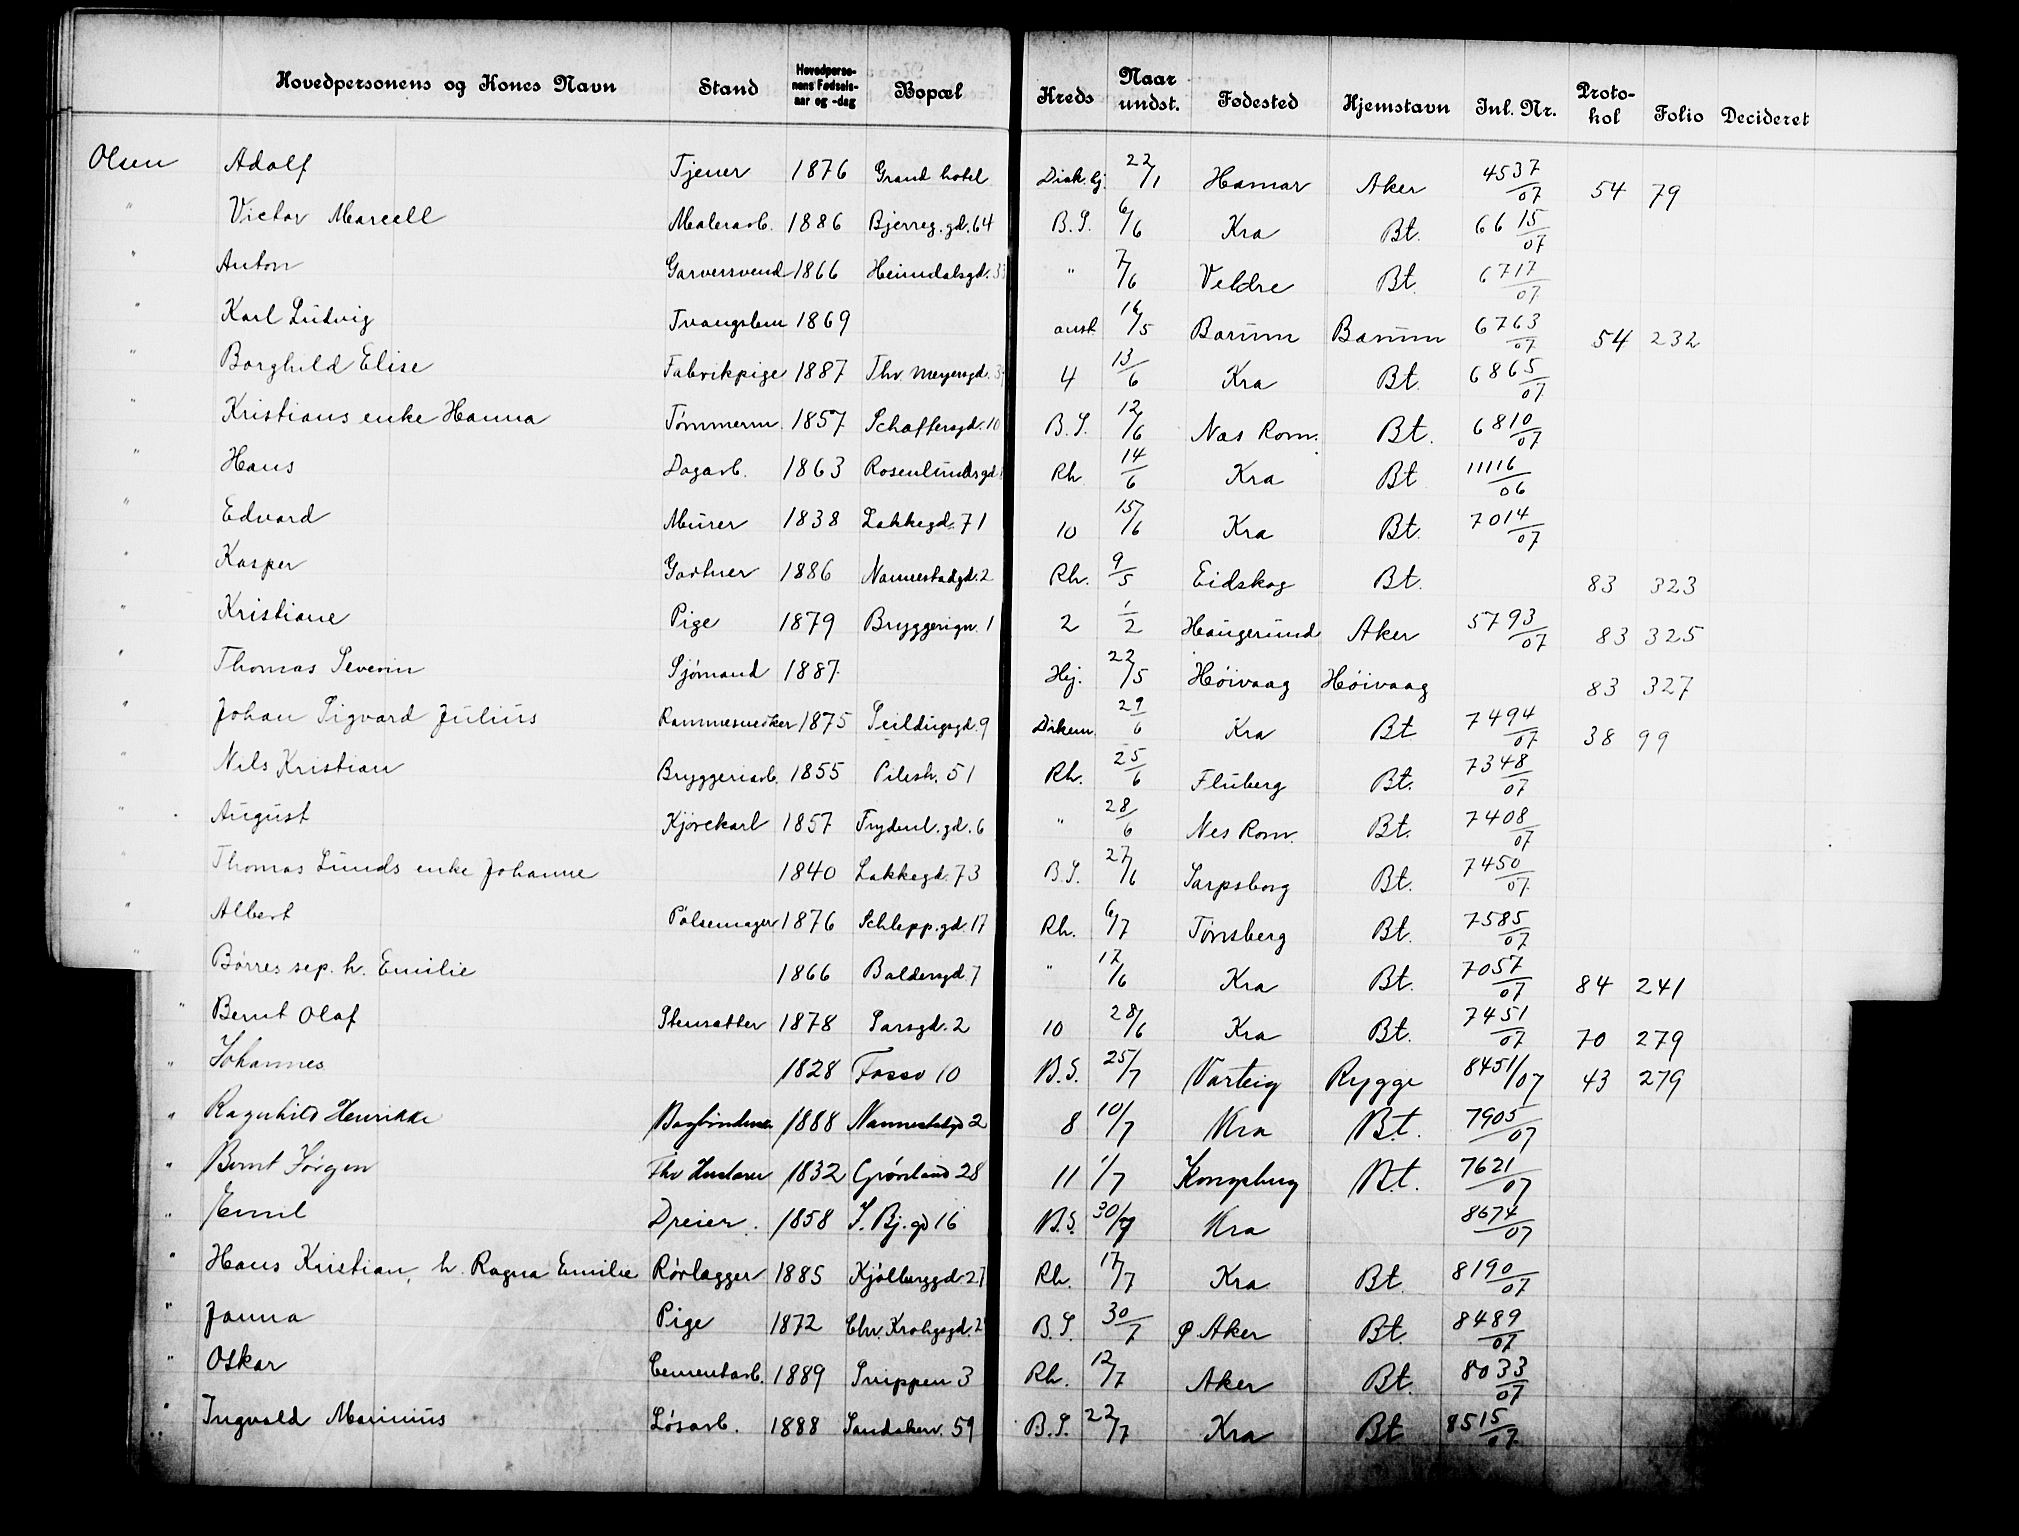 Hovedpersonens og Kones Navn Stand Hovedpersonens Fødselsaar og -dag Bopæl Kreds Naar undst. Fødested Hjemstavn Inl. Nr. Protokol Folio Decideret
Olsen Adolf Tjener 1876 Grand hotel 22/1 Hamar Aker 4537/07 54 79
" Victor Marcell Malerarb. 1886 Bjerreg. gd. 64 B. S. 6/6 Kra Bt. 6615/07
" Anton Garversvend 1866 Heimdalsgd. 33 " 7/6 Veldre Bt. 6717/07
" Karl Ludvig Tvangslem 1869 anst 16/5 Bærum Bærum 6763/07 54 232
" Borghild Elise Fabrikpige 1887 Thv. Meyersgd. 4 13/6 Kra Bt. 6865/07
" Kristians enke Hanna Tømmerm. 1857 Schaffersgd. 10 B. S. 12/6 Næs Rom. Bt. 6810/07
" Hans Dagarb. 1863 Rosenlundsgd Rh. 14/6 Kra Bt 11116/06
" Edvard Murer 1838 Lakkegd. 71 10 15/6 Kra Bt. 7014/07
" Kasper Gartner 1886 Nannestadgd. 2 Rh. 9/5 Eidskog Bt. 83 323
" Kristiane Pige 1879 Bryggerign. 1 2 1/2 Haugerund Aker 5793/07 83 325
" Thomas Severin Sjømand 1887 Hej. 22/5 Høivaag Høivaag 83 327
" Johan Sigvard Julius Rammesnedker 1875 Seildugsgd. 9 Dikem. 29/6 Kra Bt 7494/07 38 99
" Nils Kristian Bryggeriarb. 1855 Pilestr. 51 Rh. 25/6 Fluberg Bt. 7348/07
" August Kjørekarl 1857 Frydenl. gd. 6 " 28/6 Nes Rom. Bt. 7408/07
" Thomas Lunds enke Johanne 1840 Lakkegd. 73 B. S. 27/6 Sarpsborg Bt. 7450/07
" Albert Pølsemager 1876 Schlepp. gd. 17 Rh. 6/7 Tønsberg Bt. 7585/07
" Børres sep. h. Emilie 1866 Baldersgd 7 " 17/6 Kra Bt. 7057/07 84 241
" Bernt Olaf Stensætter 1878 Sarsgd. 2 10 28/6 Kra Bt. 7451/07 70 279
" Johannes 1828 Fossv 10 B.S. 25/7 Varteig Rygge 8451/07 43 279
" Ragnhild Henrikke 1888 Nannestadgd 2 8 10/7 Kra Bt. 7905/07
" Bernt Jørgen 1832 Grønland 28 11 1/7 Kongsberg Bt. 7621/07
" Emil Dreier. 1858 S. Bj. gd 16 B.S. 30/7 Kra 8674/07
" Hans Kristian, h. Ragna Emilie Rørlægger 1885 Kjølberggd. 27 Rh. 17/7 Kra Bt. 8190/07
" Janna Pige 1872 Chr. Krohgsgd. 2 B. S. 30/7 Ø Aker Bt. 8489/07
" Oskar Cementarb. 1889 Snippen 3 Rh. 12/7 Aker Bt. 8033/07
" Ingvald Marinius Løsarb. 1888 Sandakerv. 59 B. S. 22/7 Kra Bt 8515/07